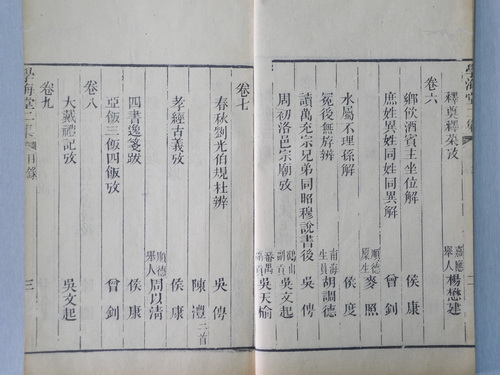 學海堂二集
二
釋奠釋菜攷 嘉應舉人楊懋建
卷六
鄉飲酒賓主坐位解 侯康
庶姓異姓同姓同異解 曾釗
水屬不理孫解 順德廩生麥照
冕後無旒辨 侯度
讀萬充宗兄弟同昭穆說書後 南海生員胡調德
周初洛邑宗廟攷 吳傳
鶴山副貢吳文起
番禺副貢吳天榆
卷七
春秋劉光伯規杜辨 吳傳
陳澧二首
孝經古義攷 侯康
四書逸箋跋 順德舉人周以清
亞飯三飯四飯攷 侯康
卷八 曾釗
大戴禮記攷 吳文起
卷九
學海堂二集 目錄
三